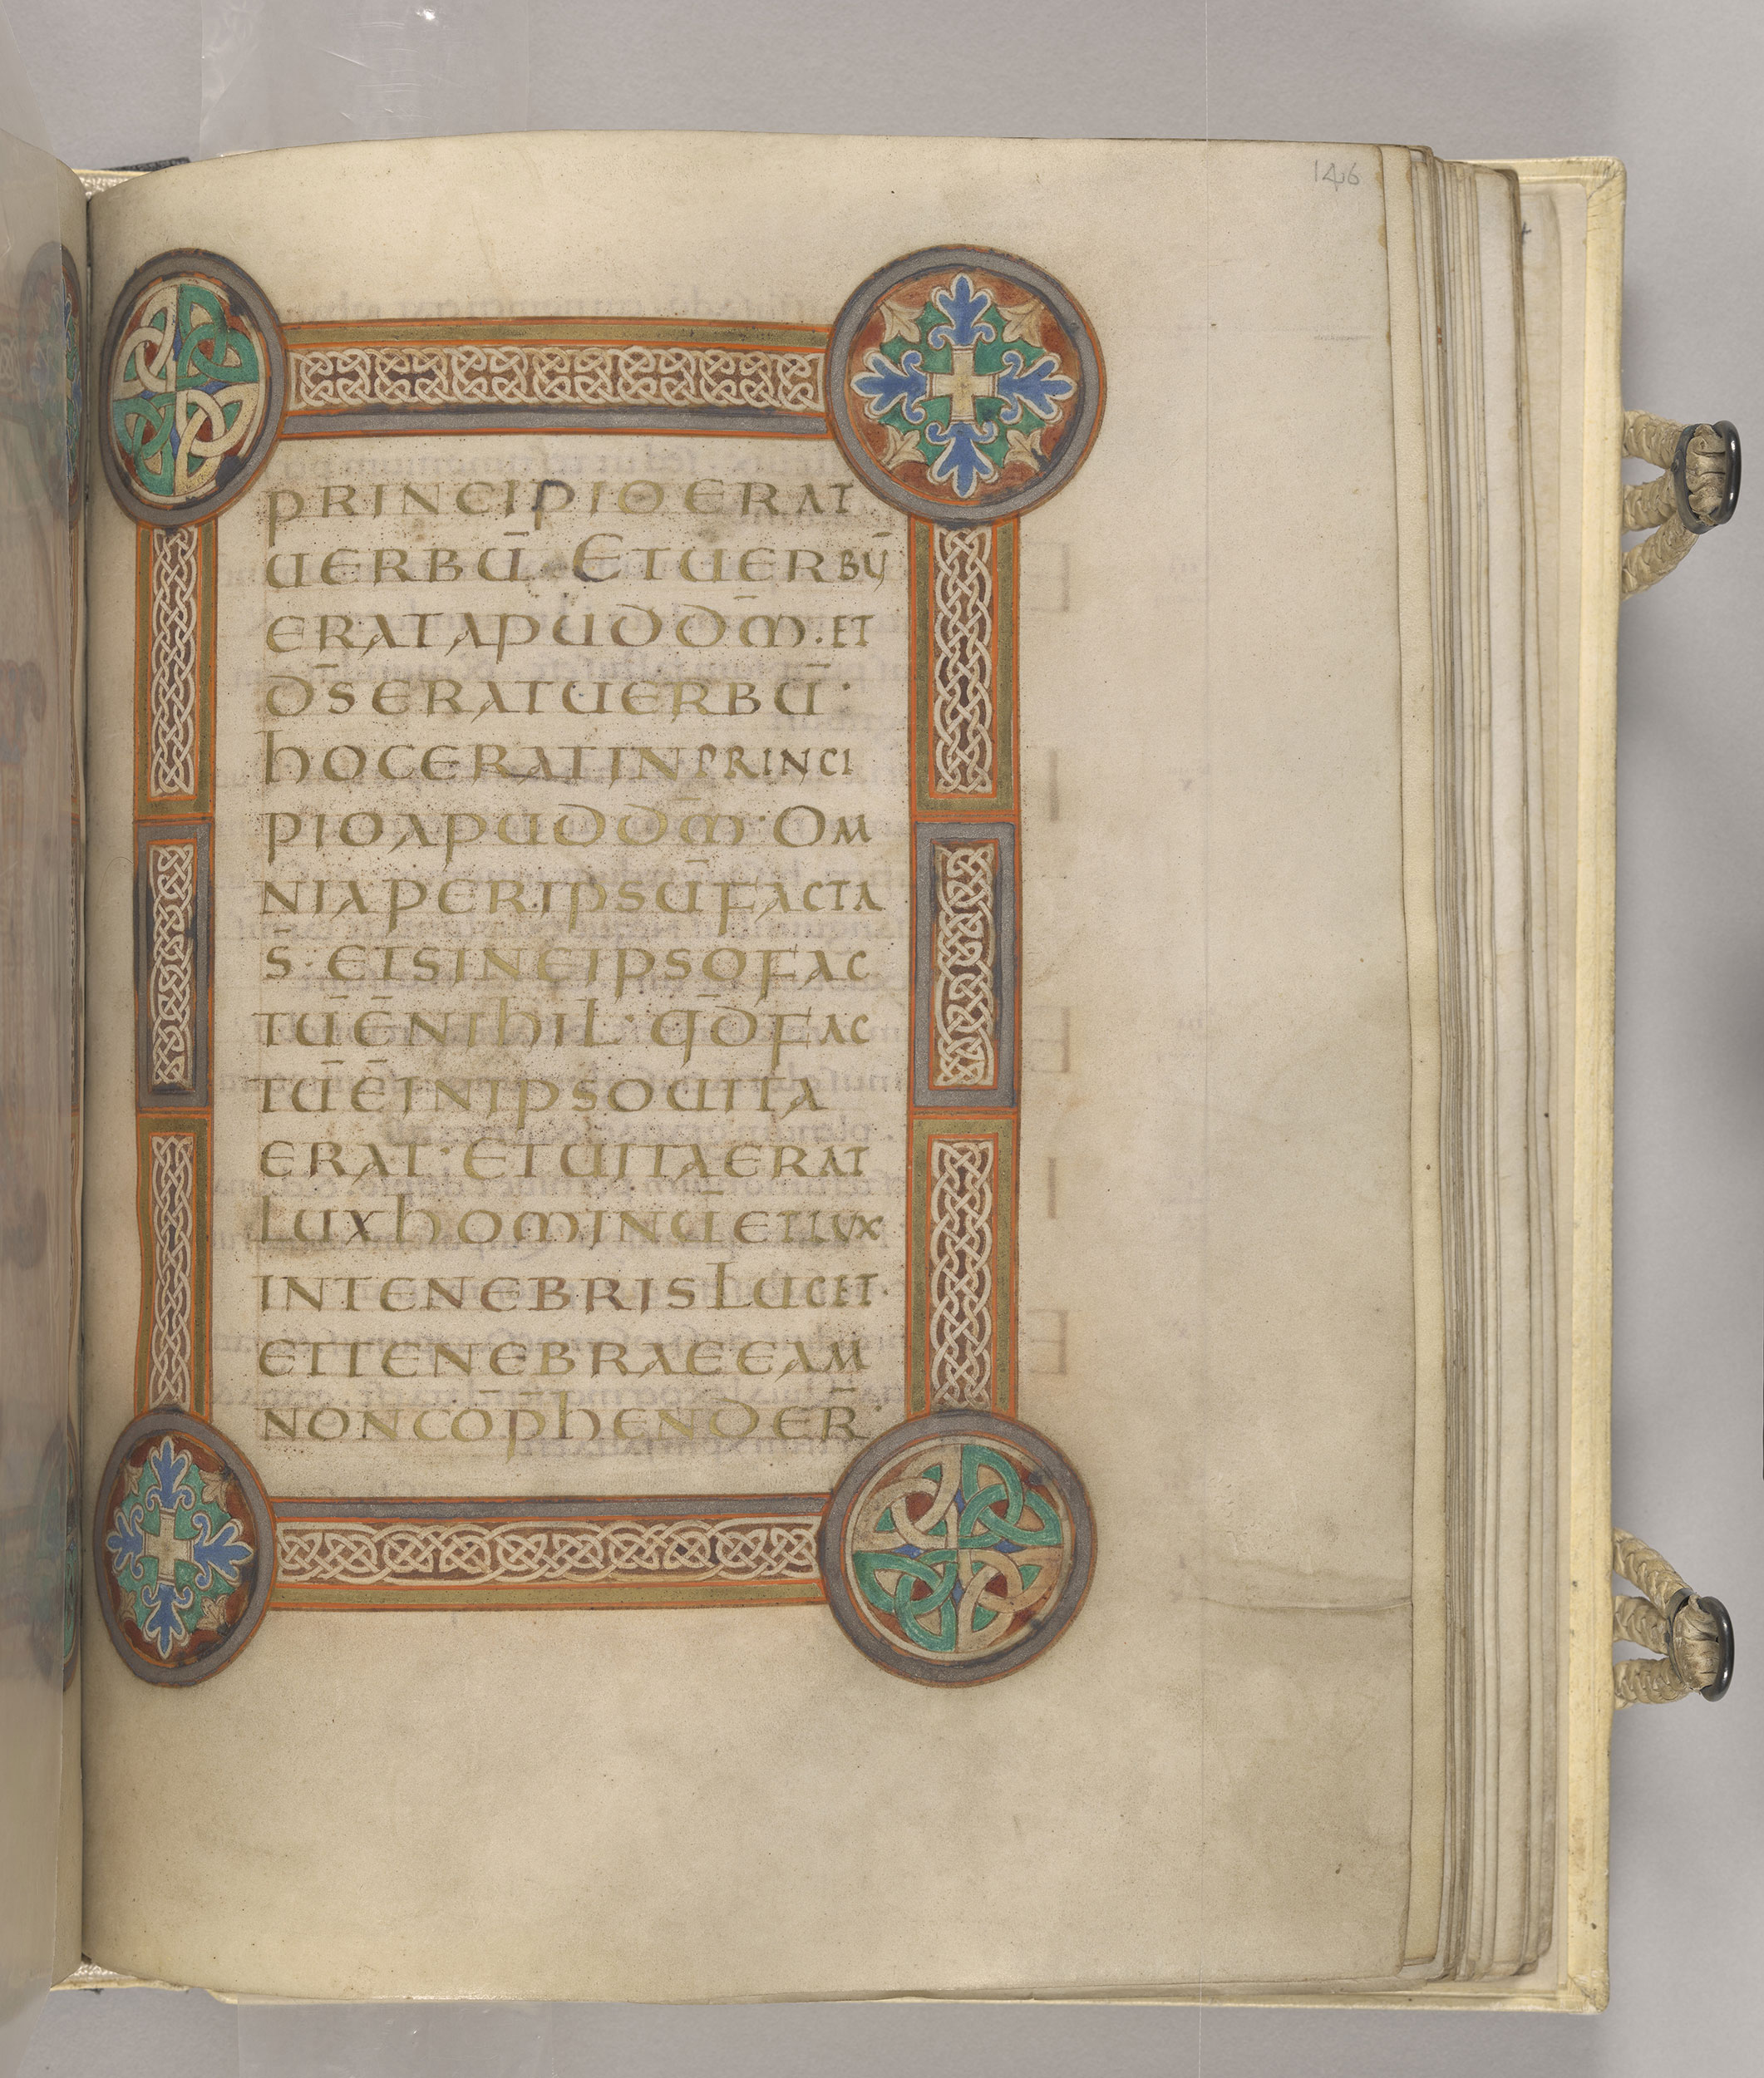 146
PRINCIPIO ERAT
UERBŪ· ET UERBŪ
ERAT APUD DM̄· ET
DS̄ ERAT UERBŪ·
HOC ERAT IN PRINCI
PIO APUD DM̄· OM
NIA PER IPSŪ FACTA
S̄· ET SINE IPSO FAC
TŪ Ē NIHIL· QD̄ FAC
TŪ Ē IN IPSO UITA
ERAT· ET UITA ERAT
LUX HOMINŪ ET LUX
IN TENEBRIS LUCET·
ET TENEBRAE EAM
NON CŌP̄HENDER̄·